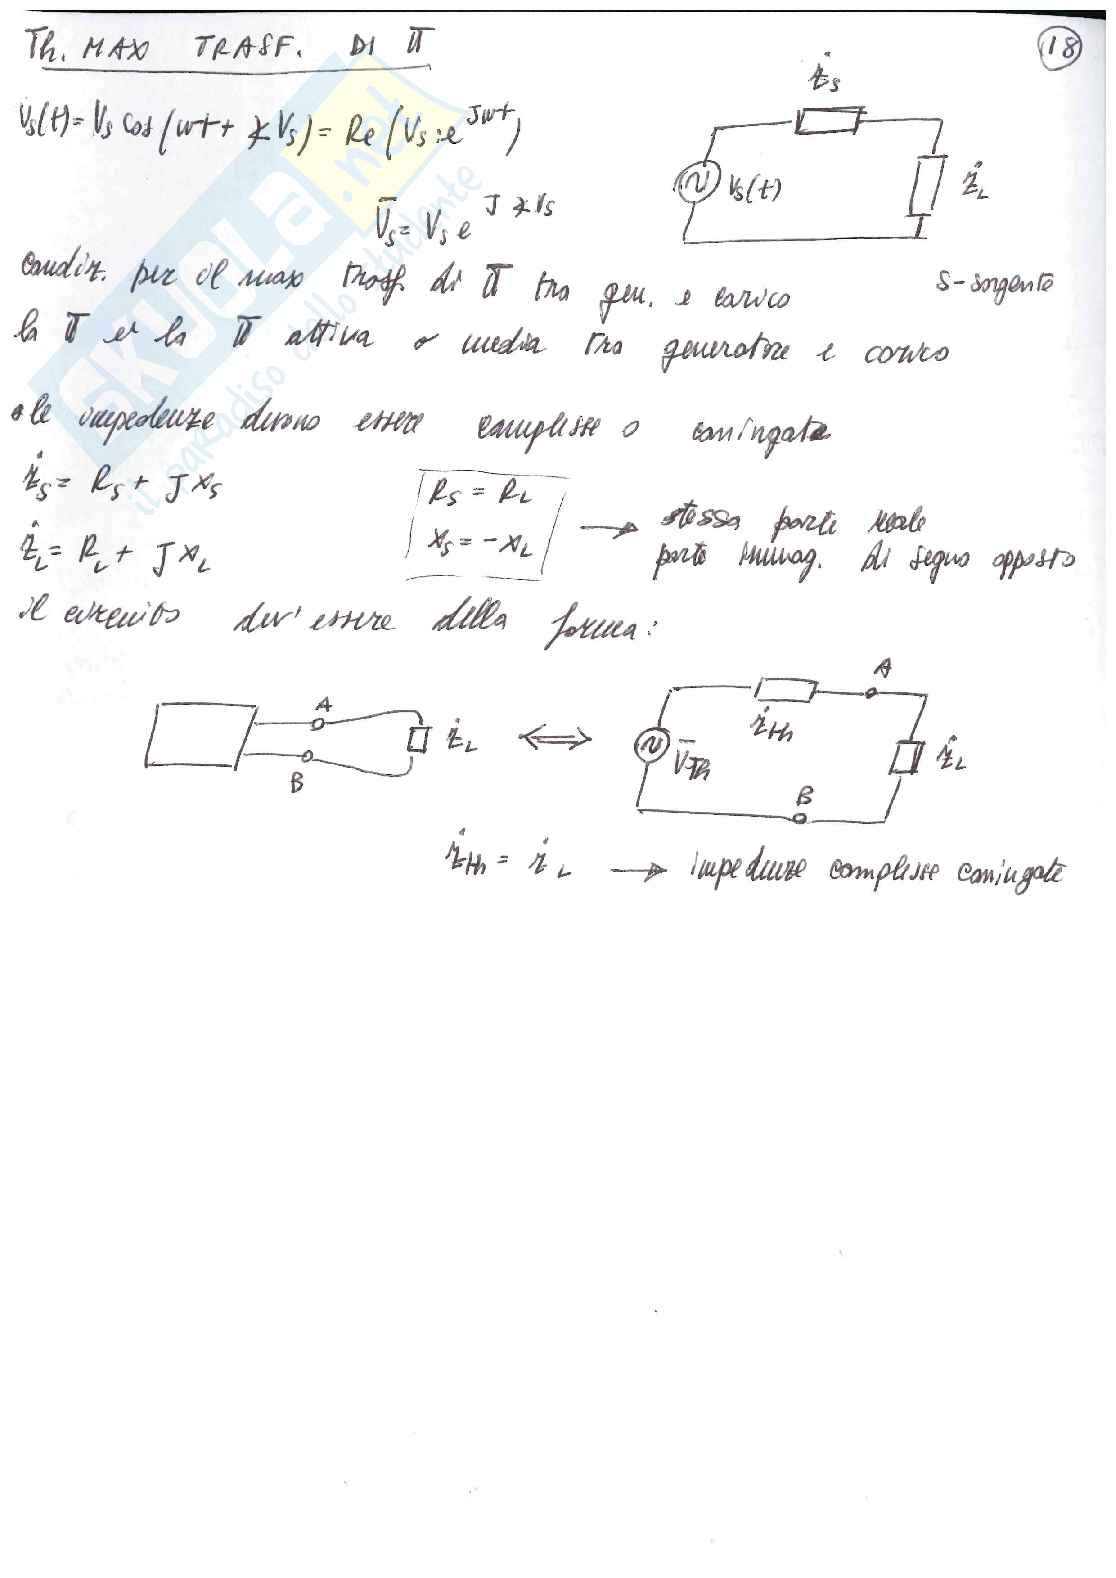 Th. MAX TRASF. DI Π
18
Vs(t) = Vs cos(wt + ∡Vs) = Re(Vs · e^Jwt)
V̄s = Vs e^J∡Vs
Żs
Vs(t)
ŻL
S-sorgente
condiz. per il max trasf. di Π tra gen. e carico
la Π è la Π attiva o media tra generatore e carico
• le impedenze devono essere complesse o coniugate
Żs = Rs + JXs
ŻL = RL + JXL
Rs = RL
Xs = -XL
→ stessa parte reale
parte immag. di segno opposto
il circuito dev'essere della forma:
A
B
ŻL
⟺
V̄Th
ŻTh
A
B
ŻL
ŻTh = ŻL → impedenze complesse coniugate
SKUOLA.net
il paradiso dello studente